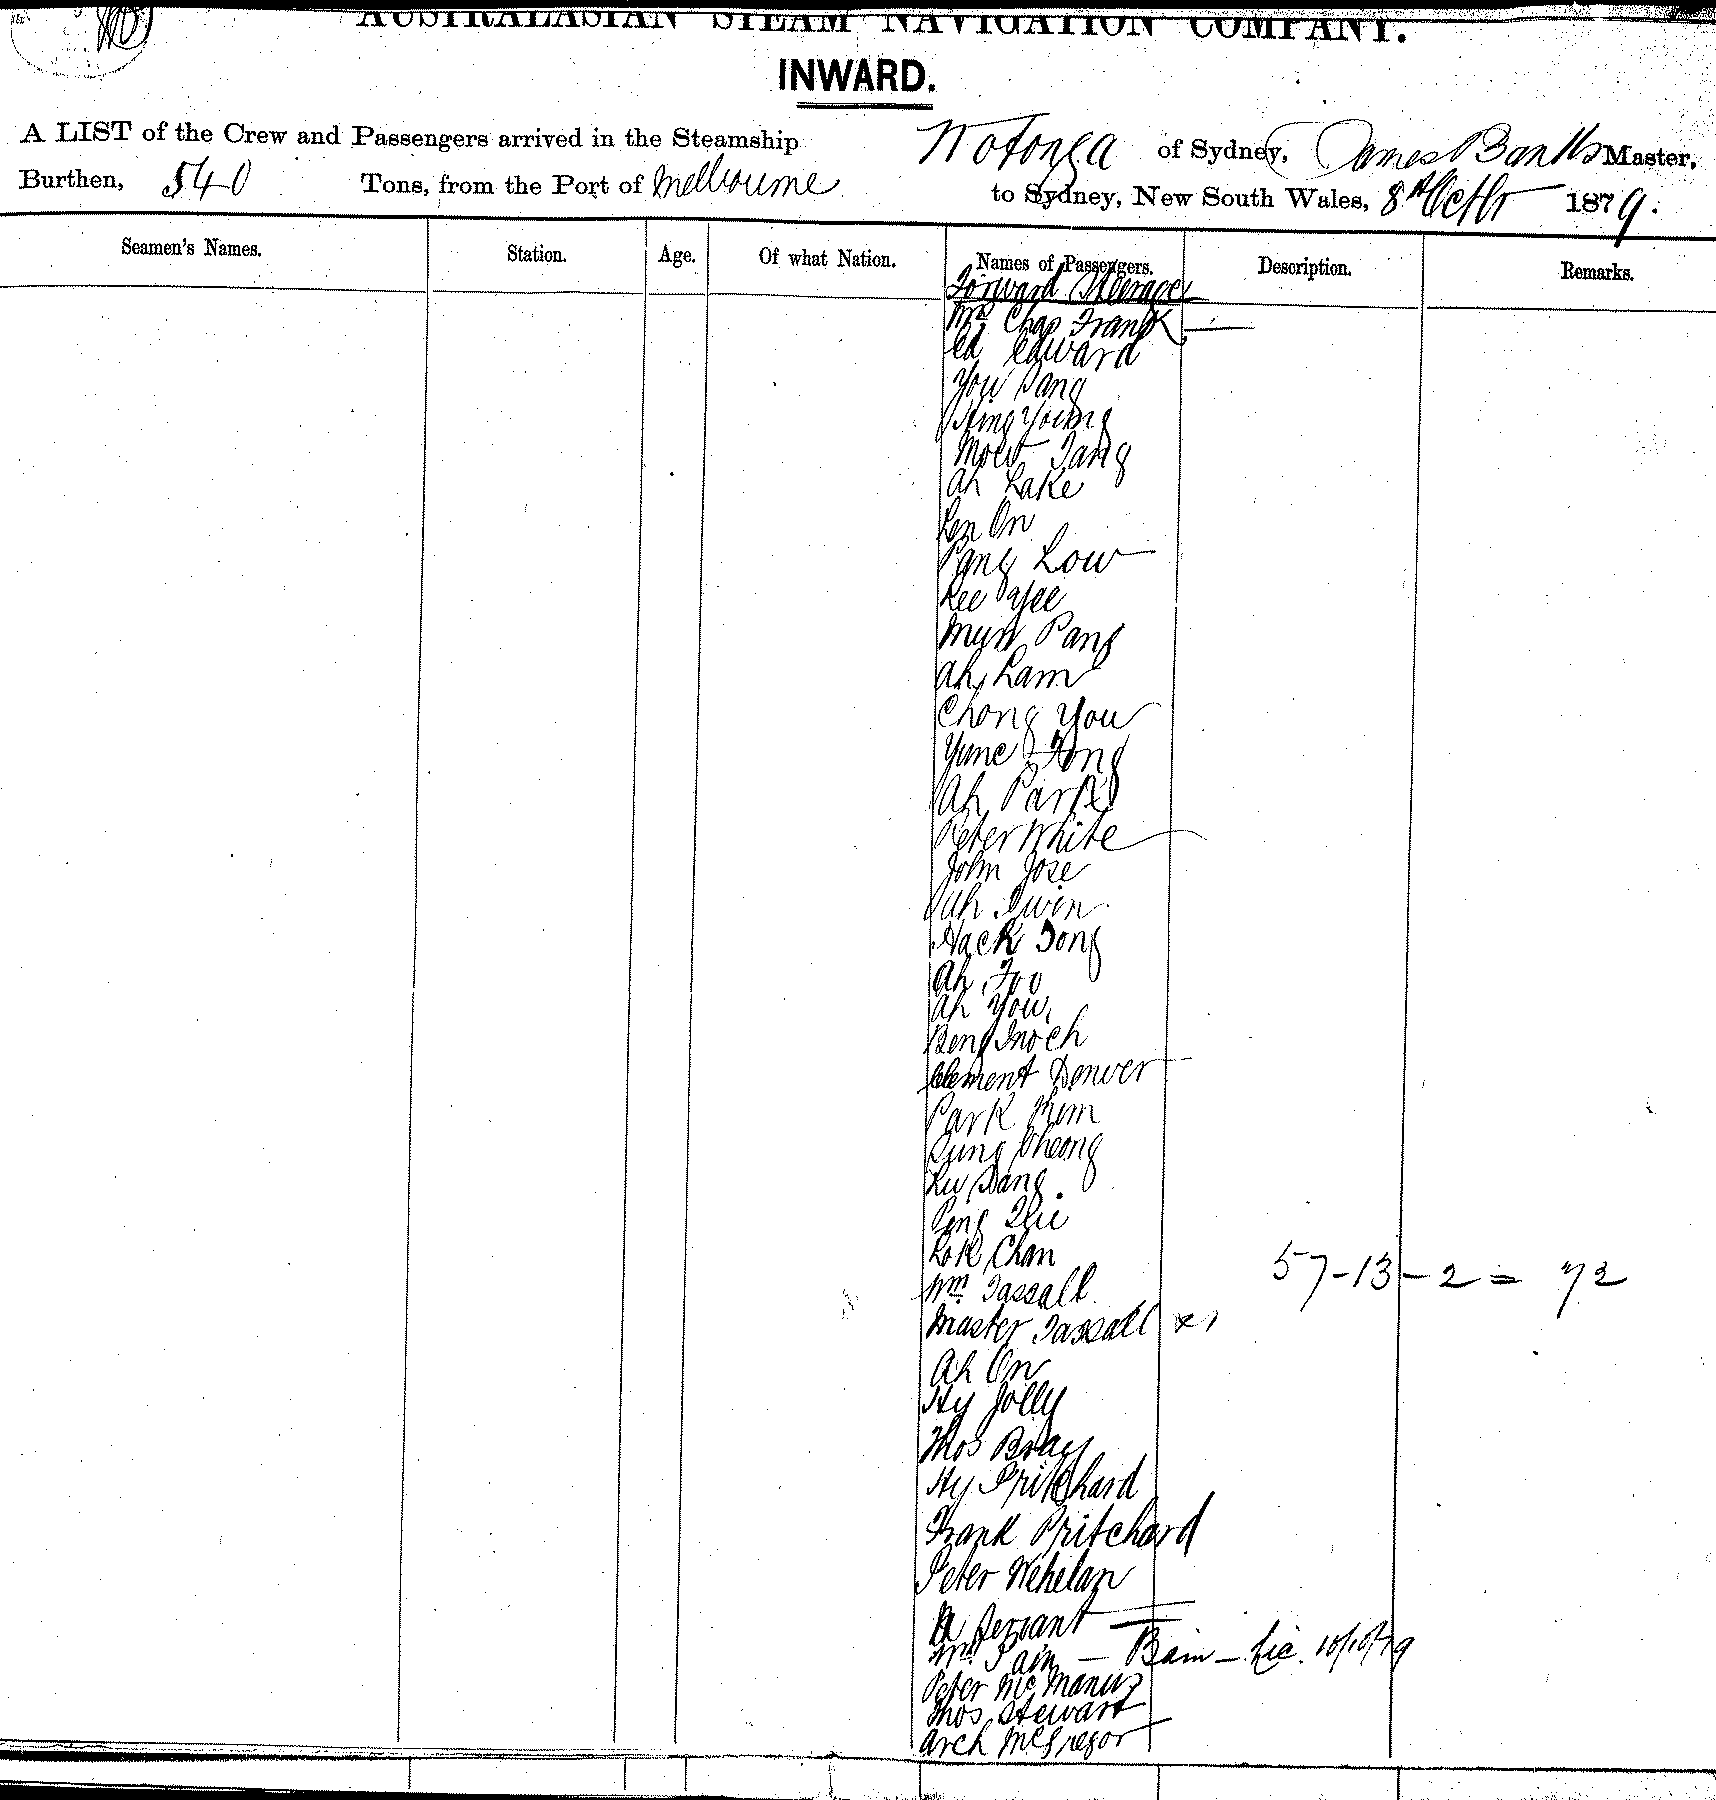 AUSTRALASIAN STEAM NAVIGATION COMPANY.
INWARD.
A LIST of the Crew and Passengers arrived in the Steamship Wotonga of Sydney, James Banks Master,
Burthen, 540 Tons, from the Port of Melbourne to Sydney, New South Wales, 8th Octbr 1879.
Seamen's Names. Station. Age. Of what Nation. Names of Passengers. Description. Remarks.
Forward Steerage
Chas Frank
Ed Edward
You Pang
Hing Young
Mow Tang
Ah Lake
Len On
Pang Low
Lee Yee
Mun Pang
Ah Lam
Chong You
Yune Fong
Ah Park
Peter White
John Jose
Ah Twin
Hack Tong
Ah Foo
Ah You
Benj Inoch
Clement Denver
Park Them
Sung Cheong
Lu Sang
Pong
Lok Chan
57-13-2 = 72
Wm. Tassall
Master Tassall x 1
Ah On
Hy Jolly
Thos Bray
Hy Pritchard
Frank Pritchard
Peter Wehelan
A Servant
Pain - Bain - Lic. 10/10/79
Peter McManus
Thos Stewart
Arch McGregor